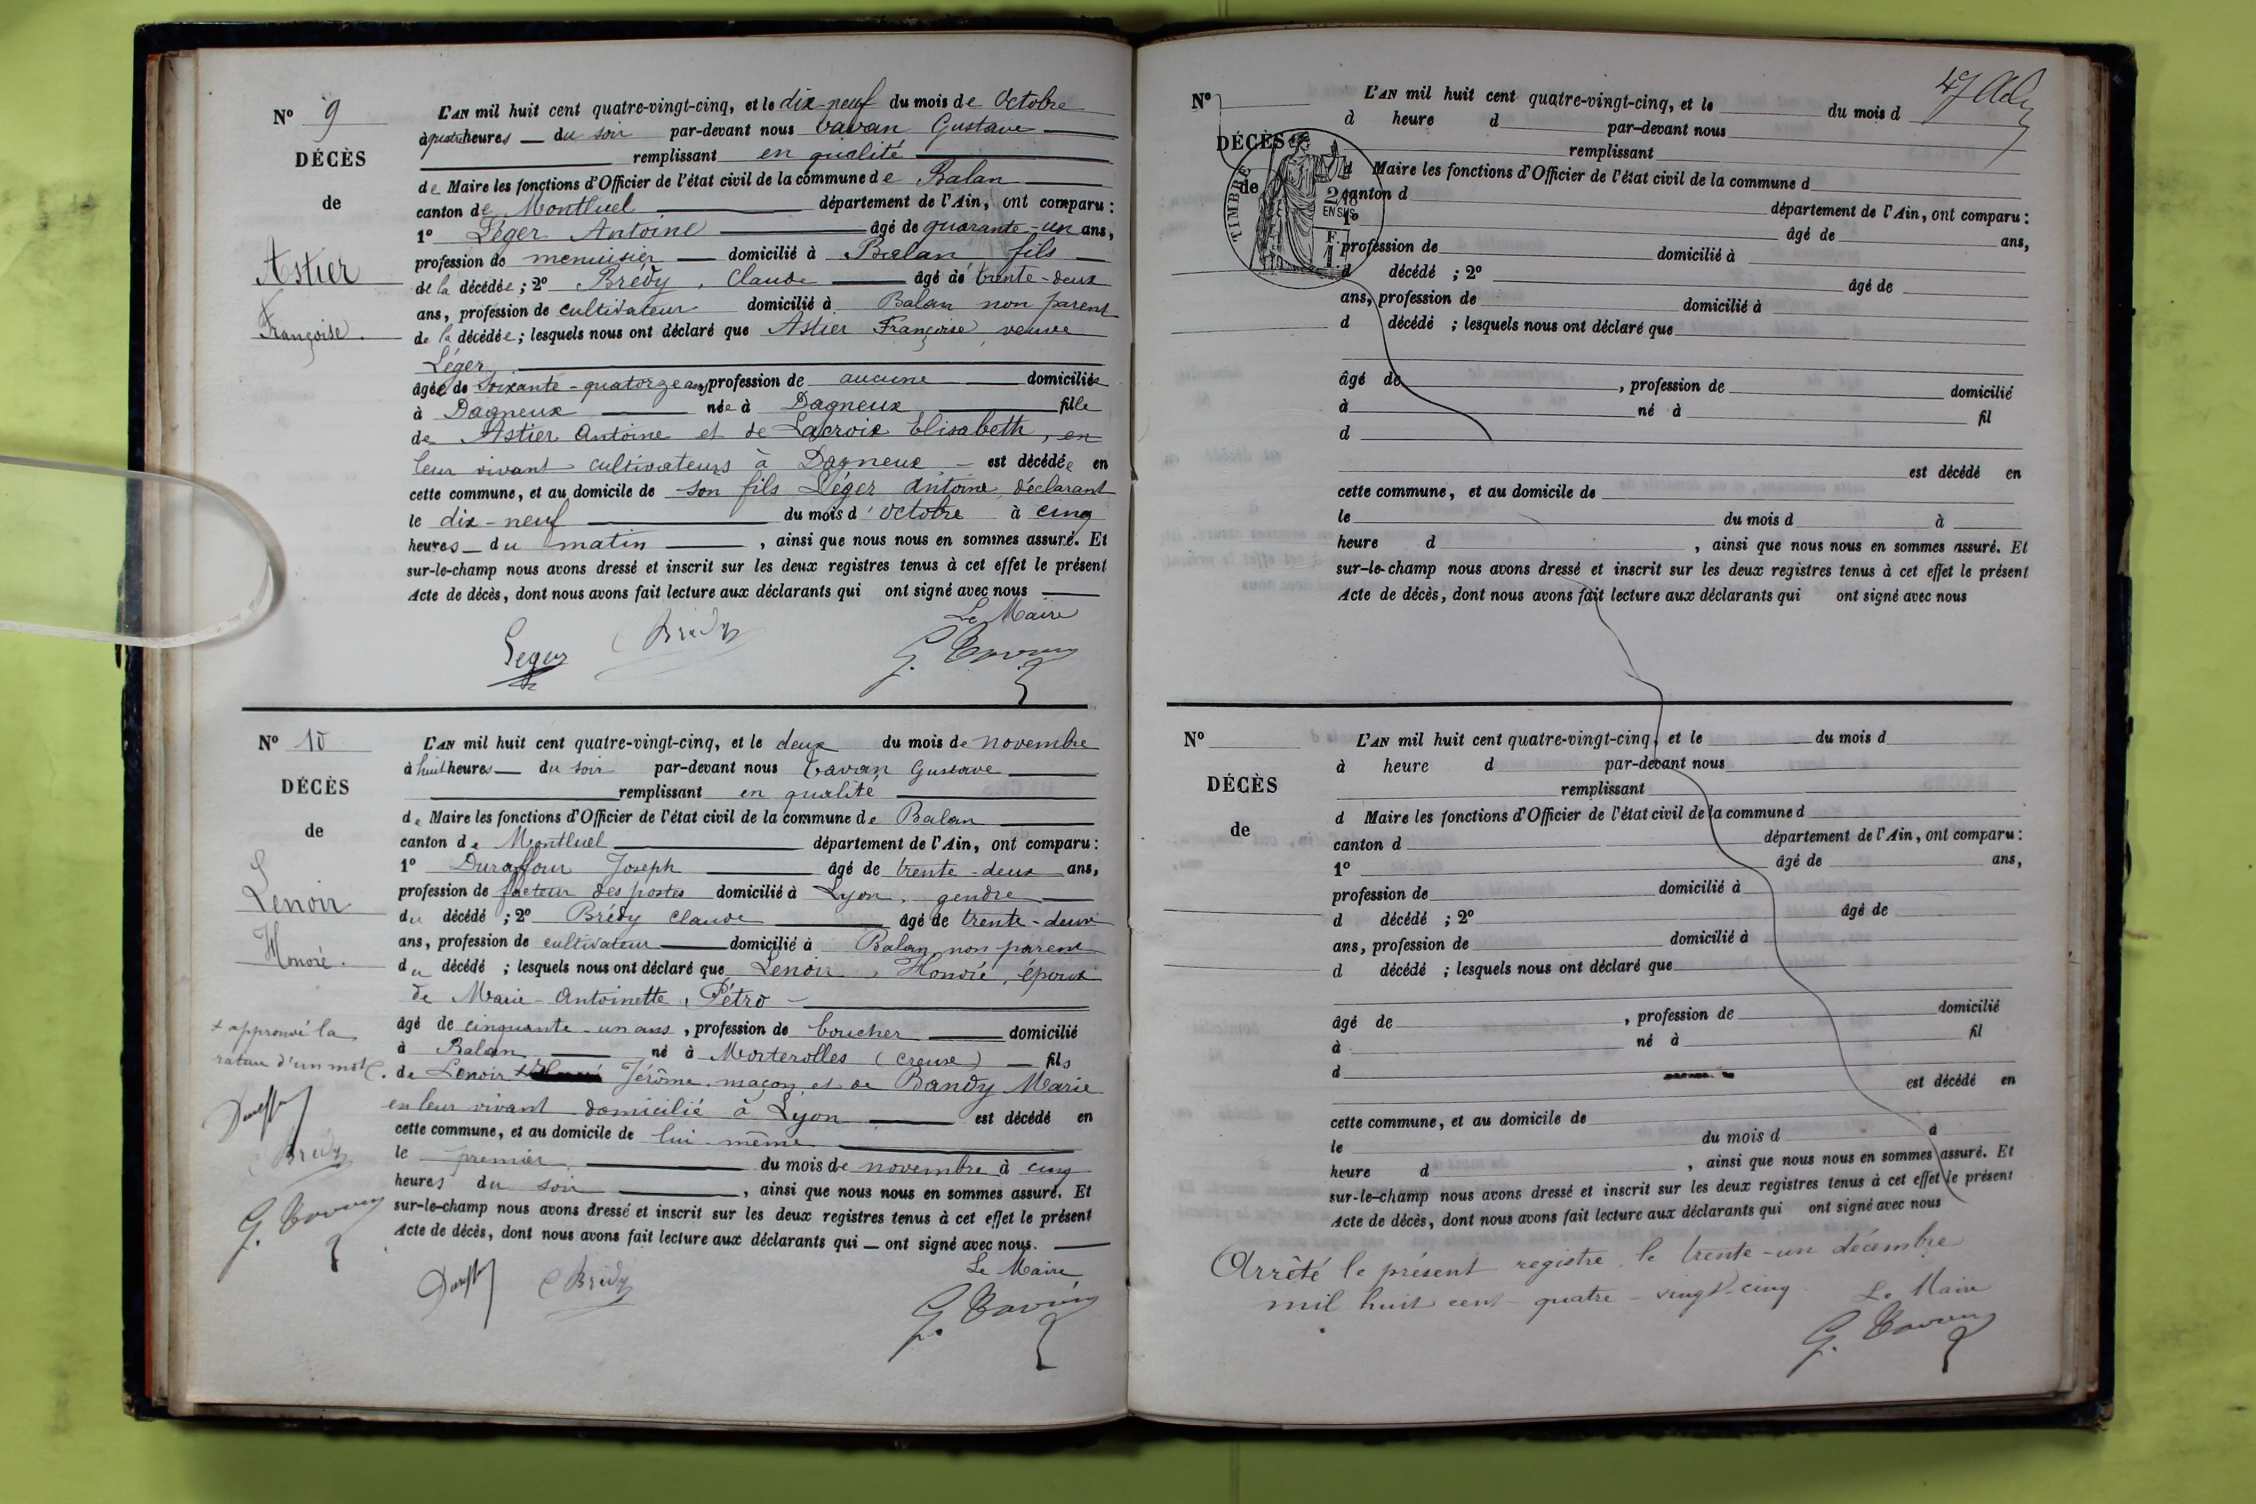 N° 9
DÉCÈS
de
Astier
Françoise.
L'AN mil huit cent quatre-vingt-cinq, et le dix-neuf du mois de Octobre
à quatre heures du soir par-devant nous Cavan Gustave
remplissant en qualité
de Maire les fonctions d'Officier de l'état civil de la commune de Balan
canton de Montluel département de l'Ain, ont comparu :
1° Léger Antoine âgé de quarante-un ans,
profession de menuisier domicilié à Balan fils
de la décédée ; 2° Brédy, Claude âgé de trente-deux
ans, profession de cultivateur domicilié à Balan non parent
de la décédée ; lesquels nous ont déclaré que Astier Françoise veuve
Léger
âgée de soixante-quatorze ans, profession de aucune domiciliée
à Dagneux née à Dagneux fille
de Astier Antoine et de Lacroix Elisabeth, en
leur vivant cultivateurs à Dagneux - est décédée en
cette commune, et au domicile de son fils Léger Antoine, déclarant
le dix-neuf du mois d'octobre à cinq
heures du matin, ainsi que nous nous en sommes assuré. Et
sur-le-champ nous avons dressé et inscrit sur les deux registres tenus à cet effet le présent
Acte de décès, dont nous avons fait lecture aux déclarants qui ont signé avec nous
Le Maire
Leger C Brédy G. Cavan
N° 10
DÉCÈS
de
Lenoir
Honoré.
L'AN mil huit cent quatre-vingt-cinq, et le deux du mois de novembre
à huit heures du soir par-devant nous Cavan Gustave
remplissant en qualité
de Maire les fonctions d'Officier de l'état civil de la commune de Balan
canton de Montluel département de l'Ain, ont comparu :
1° Duraffour Joseph âgé de trente-deux ans,
profession de facteur des postes domicilié à Lyon, gendre
du décédé ; 2° Brédy Claude âgé de trente-deux
ans, profession de cultivateur domicilié à Balan, non parent
du décédé ; lesquels nous ont déclaré que Lenoir, Honoré, époux
de Marie-Antoinette Pétro -
âgé de cinquante-un ans, profession de boucher domicilié
à Balan né à Morterolles (Creuse) fils
de Lenoir + Jérôme, maçon et de Bandy Marie
en leur vivant domicilié à Lyon est décédé en
cette commune, et au domicile de lui-même
le premier du mois de novembre à cinq
heures du soir, ainsi que nous nous en sommes assuré. Et
sur-le-champ nous avons dressé et inscrit sur les deux registres tenus à cet effet le présent
Acte de décès, dont nous avons fait lecture aux déclarants qui ont signé avec nous.
Le Maire
C Brédy G. Cavan
+ approuvé la
rature d'un mot
C Brédy
G. Cavan
N°
DÉCÈS
de
TIMBRE
2/10
EN SUS
F.
1.
L'AN mil huit cent quatre-vingt-cinq, et le du mois d
d heure d par-devant nous
remplissant
d Maire les fonctions d'Officier de l'état civil de la commune d
canton d département de l'Ain, ont comparu :
1° âgé de ans,
profession de domicilié à
d décédé ; 2° âgé de
ans, profession de domicilié à
d décédé ; lesquels nous ont déclaré que
âgé de , profession de domicilié
à né à fil
d
est décédé en
cette commune, et au domicile de
le du mois d à
heure d , ainsi que nous nous en sommes assuré. Et
sur-le-champ nous avons dressé et inscrit sur les deux registres tenus à cet effet le présent
Acte de décès, dont nous avons fait lecture aux déclarants qui ont signé avec nous
N°
DÉCÈS
de
L'AN mil huit cent quatre-vingt-cinq, et le du mois d
à heure d par-devant nous
remplissant
d Maire les fonctions d'Officier de l'état civil de la commune d
canton d département de l'Ain, ont comparu :
1° âgé de ans,
profession de domicilié à
d décédé ; 2° âgé de
ans, profession de domicilié à
d décédé ; lesquels nous ont déclaré que
âgé de , profession de domicilié
à né à fil
d
est décédé en
cette commune, et au domicile de
le du mois d à
heure d , ainsi que nous nous en sommes assuré. Et
sur-le-champ nous avons dressé et inscrit sur les deux registres tenus à cet effet le présent
Acte de décès, dont nous avons fait lecture aux déclarants qui ont signé avec nous
Arrêté le présent registre le trente-un décembre
mil huit cent quatre-vingt-cinq. Le Maire
G. Cavan